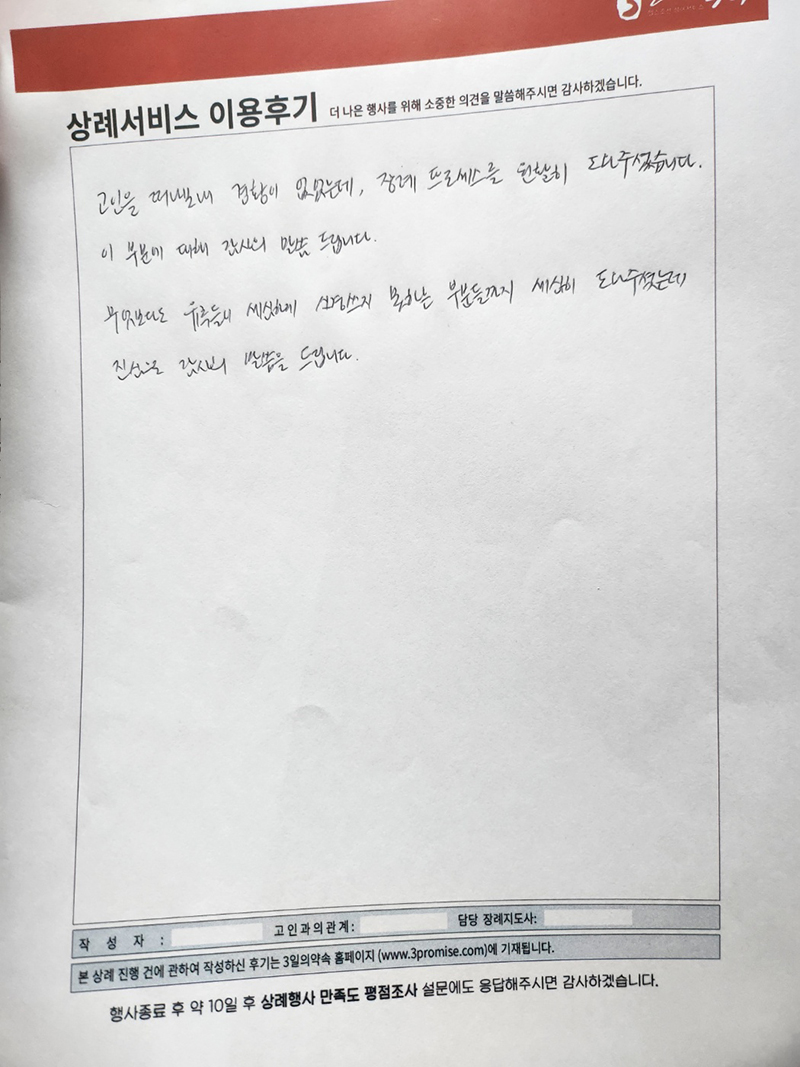 상례서비스 이용후기 더 나은 행사를 위해 소중한 의견을 말씀해주시면 감사하겠습니다.
고인을 떠나보내 경황이 없었는데, 장례 프로세스를 원활히 도와주셨습니다.
이 부분에 대해 감사의 말씀 드립니다.
무엇보다도 유족들이 세심하게 신경쓰지 못하는 부분들까지 세심히 도와주셨는데
진심으로 감사의 말씀을 드립니다.
작 성 자 : 고인과의관계: 담당 장례지도사:
본 상례 진행 건에 관하여 작성하신 후기는 3일의약속 홈페이지 (www.3promise.com)에 기재됩니다.
행사종료 후 약 10일 후 상례행사 만족도 평점조사 설문에도 응답해주시면 감사하겠습니다.